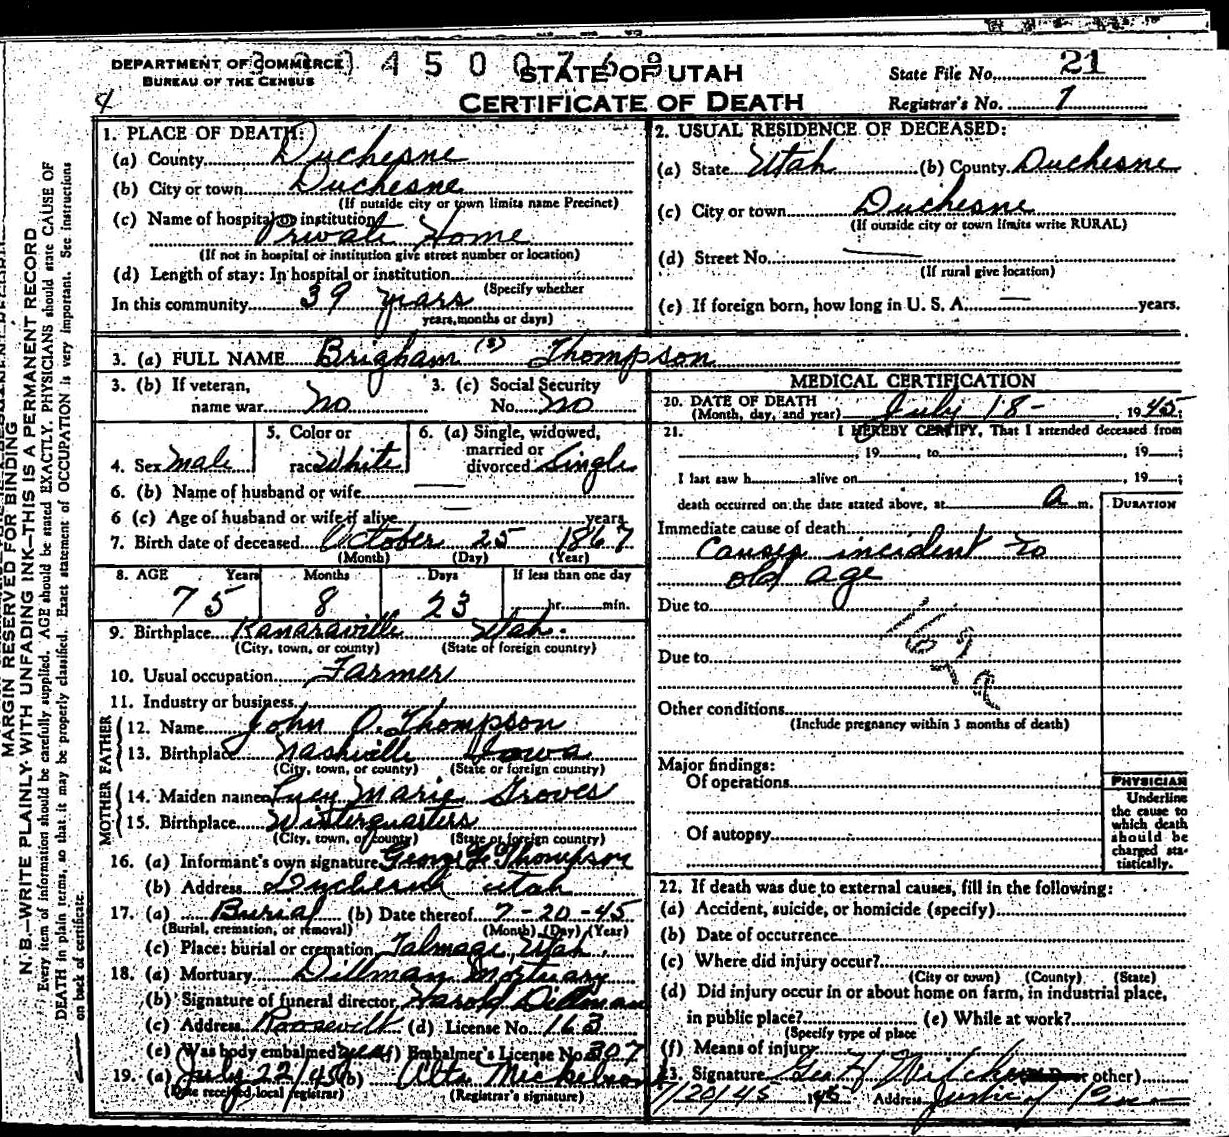 DEPARTMENT OF COMMERCE
BUREAU OF THE CENSUS
4 5 0 0 7 6
STATE OF UTAH
CERTIFICATE OF DEATH
State File No. 21
Registrar's No. 7
4
MARGIN RESERVED FOR BINDING
N. B.—WRITE PLAINLY WITH UNFADING INK—THIS IS A PERMANENT RECORD
Every item of information should be carefully supplied. AGE should be stated EXACTLY. PHYSICIANS should state CAUSE OF
DEATH in plain terms, so that it may be properly classified. Exact statement of OCCUPATION is very important. See instructions
on back of certificate.
1. PLACE OF DEATH:
(a) County Duchesne
(b) City or town Duchesne
(If outside city or town limits name Precinct)
(c) Name of hospital or institution
Private Home
(If not in hospital or institution give street number or location)
(d) Length of stay: In hospital or institution
(Specify whether
In this community 39 years
years, months or days)
2. USUAL RESIDENCE OF DECEASED:
(a) State Utah (b) County Duchesne
(c) City or town Duchesne
(If outside city or town limits write RURAL)
(d) Street No. —
(If rural give location)
(e) If foreign born, how long in U. S. A. — years.
3. (a) FULL NAME Brigham (s) Thompson
3. (b) If veteran, name war no
3. (c) Social Security No. no
4. Sex Male
5. Color or race White
6. (a) Single, widowed, married or divorced Single
6. (b) Name of husband or wife —
6 (c) Age of husband or wife if alive — years
7. Birth date of deceased October 25 1867
(Month) (Day) (Year)
8. AGE Years Months Days If less than one day
75 8 23 hr. min.
9. Birthplace Kanaraville Utah.
(City, town, or county) (State of foreign country)
10. Usual occupation Farmer
11. Industry or business
FATHER
12. Name John O. Thompson
13. Birthplace Nashville Iowa
(City, town, or county) (State or foreign country)
MOTHER
14. Maiden name Lucy Maria Groves
15. Birthplace Winterquarters
(City, town, or county) (State or foreign country)
16. (a) Informant's own signature George Thompson
(b) Address Duchesne Utah
17. (a) Burial (b) Date thereof 7-20-45
(Burial, cremation, or removal) (Month) (Day) (Year)
(c) Place: burial or cremation Talmage, Utah
18. (a) Mortuary Dillman Mortuary
(b) Signature of funeral director Harold Dillman
(c) Address Roosevelt (d) License No. 163
(e) Was body embalmed yes (f) Embalmer's License No. 307
19. (a) July 22/45 (b) Alta Mickelson
(Date received local registrar) (Registrar's signature)
MEDICAL CERTIFICATION
20. DATE OF DEATH
(Month, day, and year) July 18- , 1945;
21. I HEREBY CERTIFY, That I attended deceased from
, 19 , to , 19 ;
I last saw h alive on , 19 ;
death occurred on the date stated above, at a m.
DURATION
Immediate cause of death
causes incident to
old age
Due to
Due to
Other conditions
(Include pregnancy within 3 months of death)
Major findings:
Of operations
Of autopsy
PHYSICIAN
Underline
the cause to
which death
should be
charged sta-
tistically.
22. If death was due to external causes, fill in the following:
(a) Accident, suicide, or homicide (specify)
(b) Date of occurrence
(c) Where did injury occur?
(City or town) (County) (State)
(d) Did injury occur in or about home on farm, in industrial place,
in public place? (e) While at work?
(Specify type of place
(f) Means of injury
23. Signature Geo H (M.D. or other)
7/20/45 Address